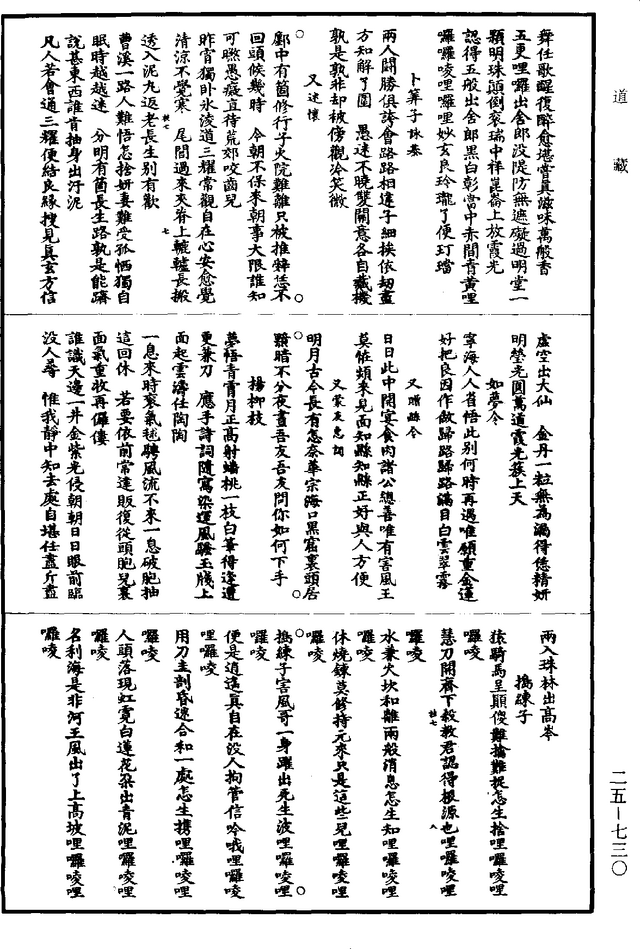 道藏
舞任歌醒復醉愈堪嘗真滋味萬般香
五更哩囉出舍郎没隄防無遮礙過明堂一
顆明珠顛倒衮瑞中祥崑崙上放霞光
認得五般出舍郎黑白彰當中赤間青黄哩
囉囉唛哩囉哩妙玄良玲瓏了便玎璫
卜筭子詠棊
兩人鬬勝俱誇會路路相違子細挨依刼畫
方知解了圍 愚迷不曉雙關意各自藏機
孰是孰非却被傍觀冷笑微
又述懷
鄽中有箇修行子火院難離只被推辭恁不
回頭候幾時 今朝不保來朝事大限誰知
可㬠愚癡直待荒郊咬齒兒
昨宵獨卧氷淩道三耀常觀自在心安愈覺
清涼不覺寒 尾閭過來夾脊上轆轤長搬
透入泥九返老長生别有歡
曹溪一路人難悟怎捨妍妻難受孤恓獨自
眠時越越迷 分明有箇長生路孰是能躋
說甚東西誰肯抽身出汙泥
凡人若會通三耀便結良緣搜見真玄方信
虚空出大仙 金丹一粒無為漏得恁精妍
明瑩光圓萬道霞光簇上天
如夢令
寧海人人省悟此别何時再遇唯願重金蓮
好把良因作做歸路歸路滿目白雲翠霧
又贈縣令
日日此中開宴食肉諸公總善唯有害風王
莫恠頻來見面知縣知縣正好與人方便
又蒙友惠詞
明月古今長有怎奈華宗海口黑窟裏頭居
黯暗不分夜晝吾友吾友問你如何下手
楊柳枝
夢悟青霄月正高射蟠桃一枝白筆得逢遭
更兼刀 應手詩詞隨寫染運風騷玉牋上
面起雲濤任陶陶
一息來時衮氣毬騁風流不來一息破胞抽
這回休 若要依前常違販復從頭胞兒裏
面氣重收再儸僂
誰識天邊一井金紫光侵朝朝日日眼前臨
没人尋 惟我靜中知去處自堪任盡斤盡
兩入珠林出高岑
搗練子
猿騎馬呈顛傻難擒難捉怎生捨哩囉唛哩
囉唛
慧刀開齊下殺救君認得根源也哩囉唛哩
囉唛
水兼火坎和離兩般消息怎生知哩囉唛哩
囉唛
休燒鍊莫修持元來只是這些兒哩囉唛哩
囉唛
搗練子害風哥一身躍出死生波哩囉唛哩
囉唛
便是逍遙真自在没人拘管信吟哦哩囉唛
哩囉唛
用刀圭剖昏迷合和一處怎生擕哩囉唛哩
囉唛
人頭落現虹霓白蓮花朶出青泥哩囉唛哩
囉唛
名利海是非河王風出了上高坡哩囉唛哩
囉唛
二五－七三〇